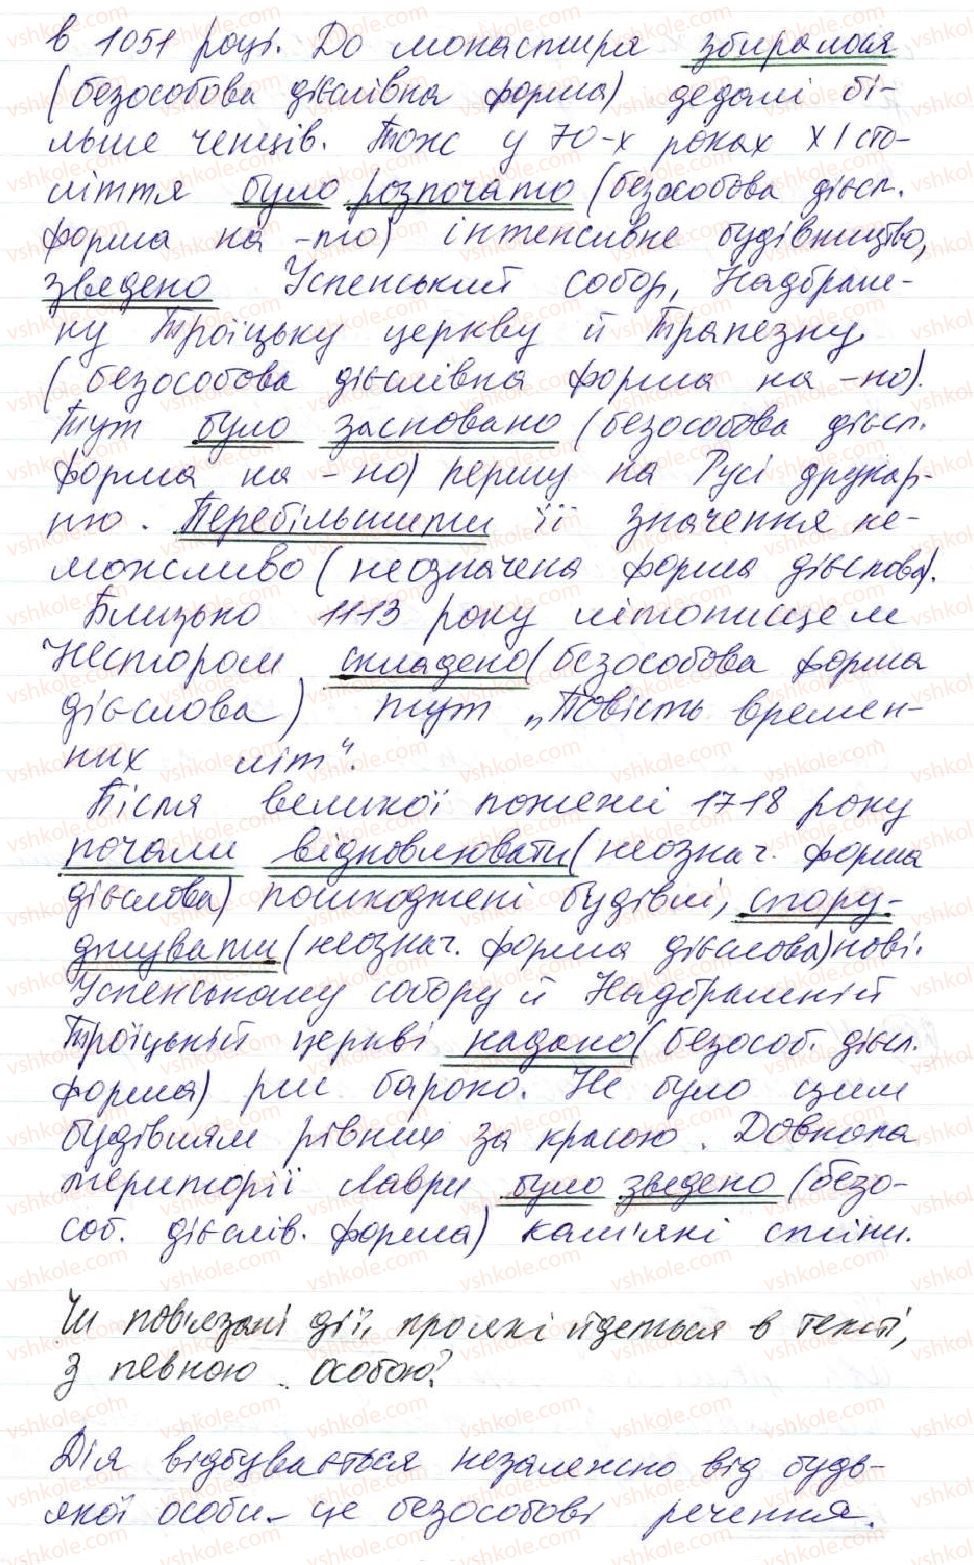 в 1051 році. До монастиря збиралося
(безособова дієслівна форма) дедалі бі-
льше ченців. Тож у 70-х роках XI сто-
ліття було розпочато (безособова дієсл.
форма на -то) інтенсивне будівництво,
зведено Успенський собор, Надбрам-
ну Троїцьку церкву й Трапезну.
(безособова дієслівна форма на -но).
Тут було засновано (безособова дієсл.
форма на -но) першу на Русі друкар-
ню. Перебільшити її значення не-
можливо (неозначена форма дієслова).
Близько 1113 року літописцем
Нестором складено (безособова форма
дієслова) тут „Повість времен-
них літ“.
Після великої пожежі 1718 року
почали відновлювати (неознач. форма
дієслова) пошкоджені будівлі, спору-
джувати (неознач. форма дієслова) нові.
Успенському собору й Надбрамній
Троїцькій церкві надано (безособ. дієсл.
форма) рис бароко. Не було цим
будівлям рівних за красою. Довкола
території Лаври було зведено (безо-
соб. дієслів. форма) кам'яні стіни.
Чи пов'язані дії, про які йдеться в тексті,
з певною особою?
Дія відбувається незалежно від будь-
якої особи - це безособові речення.